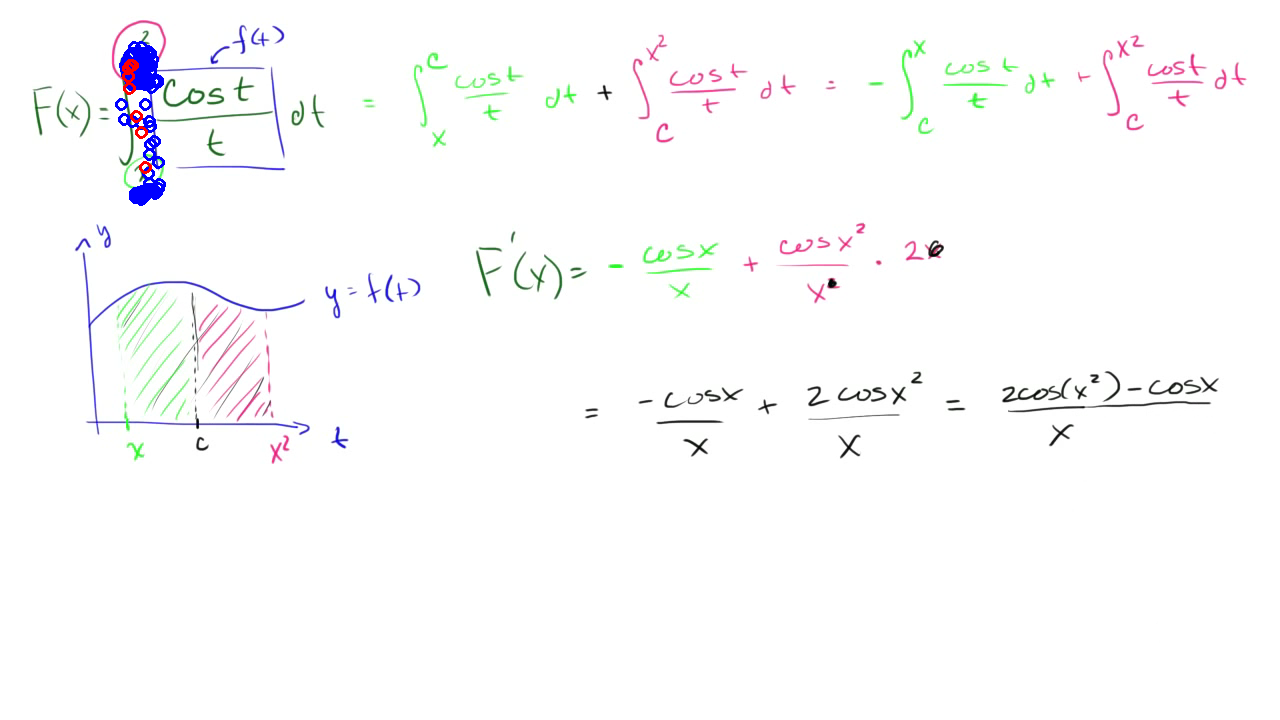 f(t)
F(x) = ∫ cos t / t dt = ∫_x^c cos t / t dt + ∫_c^{x²} cos t / t dt = - ∫_c^x cos t / t dt + ∫_c^{x²} cos t / t dt
y
y = f(t)
x c x² t
F'(x) = - cos x / x + cos x² / x · 2
= -cos x / x + 2 cos x² / x = 2cos(x²) - cos x / x